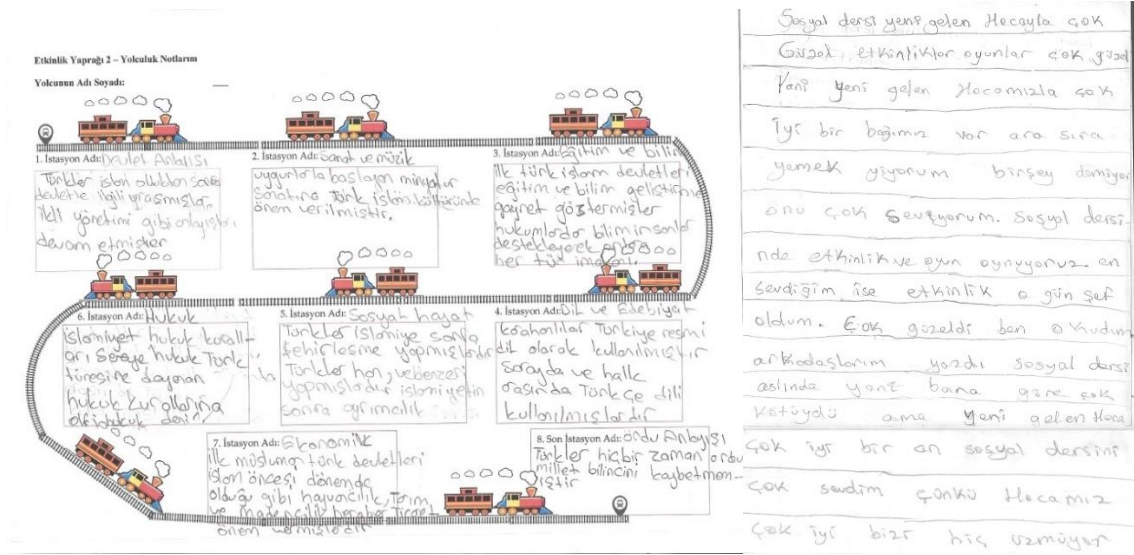 Etkinlik Yaprağı 2 – Yolculuk Notlarım
Yolcunun Adı Soyadı:
1. İstasyon Adı: Devlet Anlayışı
Türkler islam olduktan sonra
devletle ilgili
ikili yönetimi gibi anlayışları
devam etmişler
2. İstasyon Adı: Sanat ve müzik
uygurlarla başlayan minyatür
sanatına Türk islam kültüründe
önem verilmiştir.
3. İstasyon Adı: Eğitim ve bilim
ilk türk islam devletleri
eğitim ve bilim geliştirme
gayret göstermişler
hukumdarlar bilim insanları
destekleyerek onlara
her tür
4. İstasyon Adı: Dil ve Edebiyat
karahanlılar Türkiye resmi
dil olarak kullanılmıştır
sarayda ve halk
arasında Türkçe dili
kullanılmışlardır
5. İstasyon Adı: Sosyal hayat
Türkler islamiye sonra
şehirleşme yapmışlardır
Türkler han, ve benzeri
yapmışlardır islamiyetin
sonra ayrımcılık
6. İstasyon Adı: Hukuk
islamiyet hukuk kurall-
arı Şeraye hukuk Türk
türesine dayanan
hukuk kurallarına
denir.
7. İstasyon Adı: Ekonomik
ilk müslüman türk devletleri
islam öncesi dönemde
olduğu gibi hayvancılık, Tarım,
ve madencilik beraber Ticaret
önem vermişlerdir
8. Son İstasyon Adı: Ordu Anlayışı
Türkler hiçbir zaman ordu
millet bilincini kaybetmem-
iştir
Sosyal dersi yeni gelen Hocayla çok
Güzel etkinlikler oyunlar çok güzel
Yani yeni gelen Hocamızla çok
İyi bir bağımız var ara sıra
yemek yiyorum birşey demiyor
onu çok seviyorum. Sosyal dersi
nde etkinlik ve oyun oynuyoruz. en
sevdiğim ise etkinlik o gün şef
oldum. Çok güzeldi ben okudum
arkadaşlarım yazdı sosyal dersi
aslında yani bana göre çok
kötüydü ama yeni gelen Hoca
çok iyi bir an sosyal dersini
çok sevdim çünkü Hocamız
çok iyi bizi hiç üzmüyor